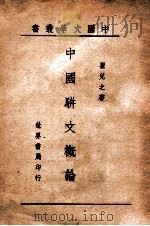 中國文學叢書
瞿兌之著
中國駢文概論
世界書局印行